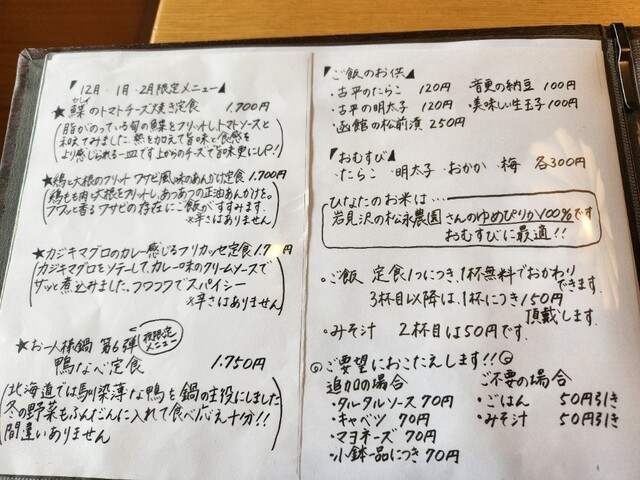 12月・1月・2月限定メニュー
★鰈のトマトチーズ焼き定食 1.700円
カレイ
脂がのっている旬の鰈をフリットし、トマトソースと
和えてみました。熱を加えて旨味と食感を
より感じられる一皿です上からのチーズで旨味更にUP!
★鶏と大根のフリット ワサビ風味のあんかけ定食 1.700円
鶏もも肉と大根をフリットし、あつあつの正油あんかけを。
フワッと香るワサビの存在にご飯がすすみます。
※辛さはありません
★カジキマグロのカレー感じるフリカッセ定食
カジキマグロをソテーして、カレー味のクリームソースで
サッと煮込みました。フワフワでスパイシー
※辛さはありません
★お一人様鍋 第6弾 夜限定メニュー
鴨なべ定食 1.750円
北海道では馴染薄な鴨を鍋の主役にしました
冬の野菜もふんだんに入れて食べ応え十分!!
間違いありません
ご飯のお供
・古平のたらこ 120円 ・音更の納豆 100円
・古平の明太子 120円 ・美味しい生玉子 100円
・函館の松前漬 250円
おむすび
・たらこ ・明太子 ・おかか ・梅 各300円
ひなたのお米は…
岩見沢の松永農園さんのゆめぴりか100%です
おむすびに最適!!
・ご飯 定食1つにつき、1杯無料でおかわりできます。
3杯目以降は、1杯につき150円
頂戴します。
・みそ汁 2杯目は50円です。
◎ご要望におこたえします!!◎
追加の場合 ご不要の場合
・タルタルソース 70円 ・ごはん 50円引き
・キャベツ 70円 ・みそ汁 50円引き
・マヨネーズ 70円
・小鉢一品につき 70円